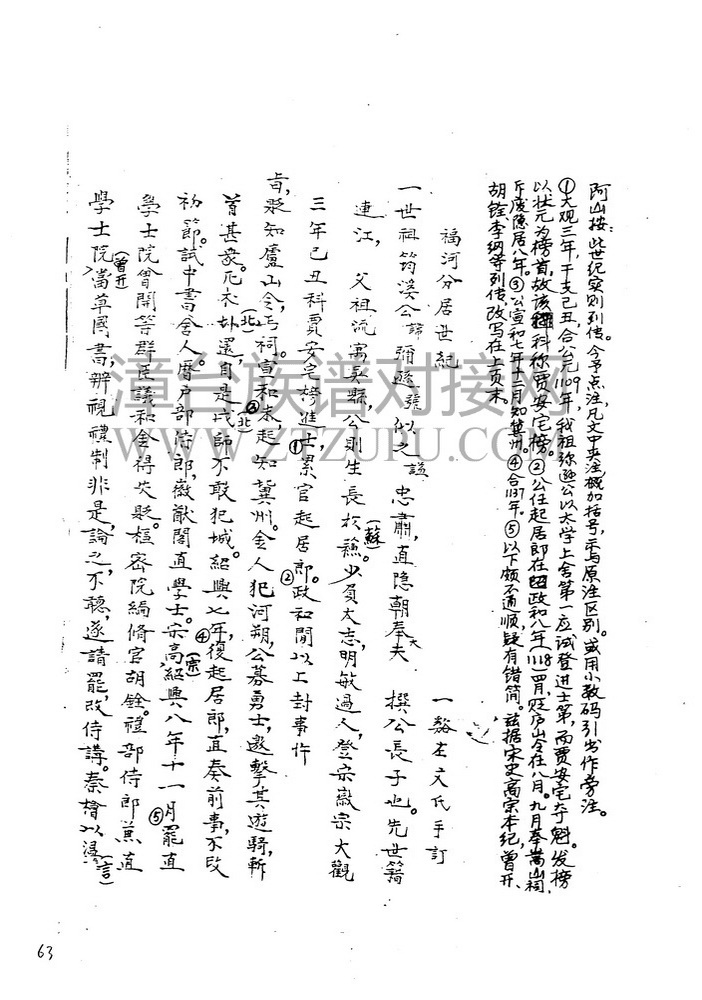 阿山按：此世纪实则列传。今予点注，凡文中夹注概加括号，示与原注区别。或用小数码引出作旁注。
①大观三年，干支己丑，合公元1109年，我祖弥逊公以太学上舍第一应试登进士第，而贾安宅夺魁。发榜
以状元为榜首，故该科称贾安宅榜。②公任起居郎在政和八年（1118）四月，贬庐山令在八月。九月奉嵩山祠，
斥废隐居八年。③公宣和七年十二月知冀州。④合1137年。⑤以下颇不通顺，疑有错简。兹据宋史高宗本纪，曾开、
胡铨、李纲等列传，改写在上页末。
福河分居世紀
一夔左文氏手訂
一世祖筠溪公諱彌遜號似之諡忠肅，直隐朝奉大夫撰公長子也。先世籍
連江，父祖流寓吴縣，公則生長於蘓(蘇)少負大志，明敏過人，登宗徽宗大觀
三年己丑科賈安宅榜進士，①累官起居郎。②政和間以上封事忤
旨，貶知廬山令，丐祠。宣和末，③起知冀州。金人犯河朔，公募勇士，邀擊其遊騎，斬
首甚衆。兀术北(北)還，自是戒師不敢犯城。紹興七年，④復起居郎，直奏前事，不改
初節。試中書舍人歷户部侍郎，徽猷閣直學士。宗高，(宗)紹興八年十一月罷直⑤
學士院曾開等群臣議和金得失。貶樞密院編脩官胡銓。禮部侍郎兼直
學士院，(曾开)當草國書，辨視禮制非是，論之不聽，遂請罷，改侍講。秦檜以溫(言)
63
漳台族谱对接网
WWW.ZTZUPU.COM